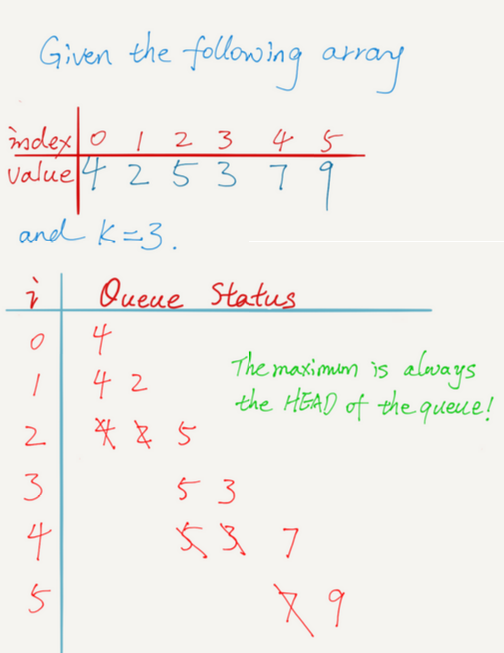 Given the following array
index 0 1 2 3 4 5
value 4 2 5 3 7 9
and K=3.
i Queue Status
0 4
1 4 2
2 4 2 5
3 5 3
4 5 3 7
5 7 9
The maximum is always
the HEAD of the queue!